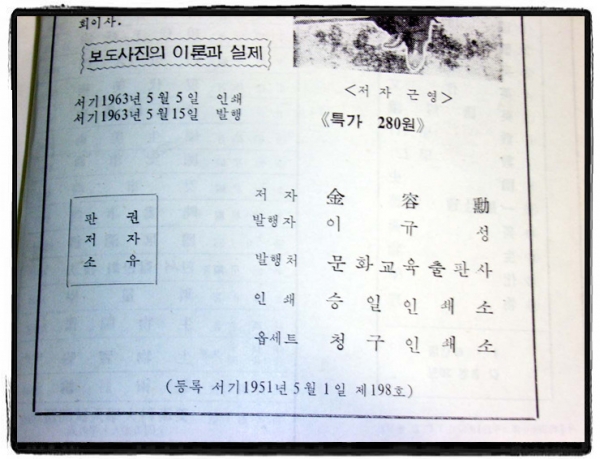 회이사.
보도사진의 이론과 실제
서기1963년 5월 5일 인쇄
서기1963년 5월15일 발행
<저자근영>
《특가 280원》
판권
저자
소유
저자 金容勳
발행자 이규성
발행처 문화교육출판사
인쇄 승일인쇄소
옵세트 청구인쇄소
(등록 서기1951년 5월 1일 제198호)